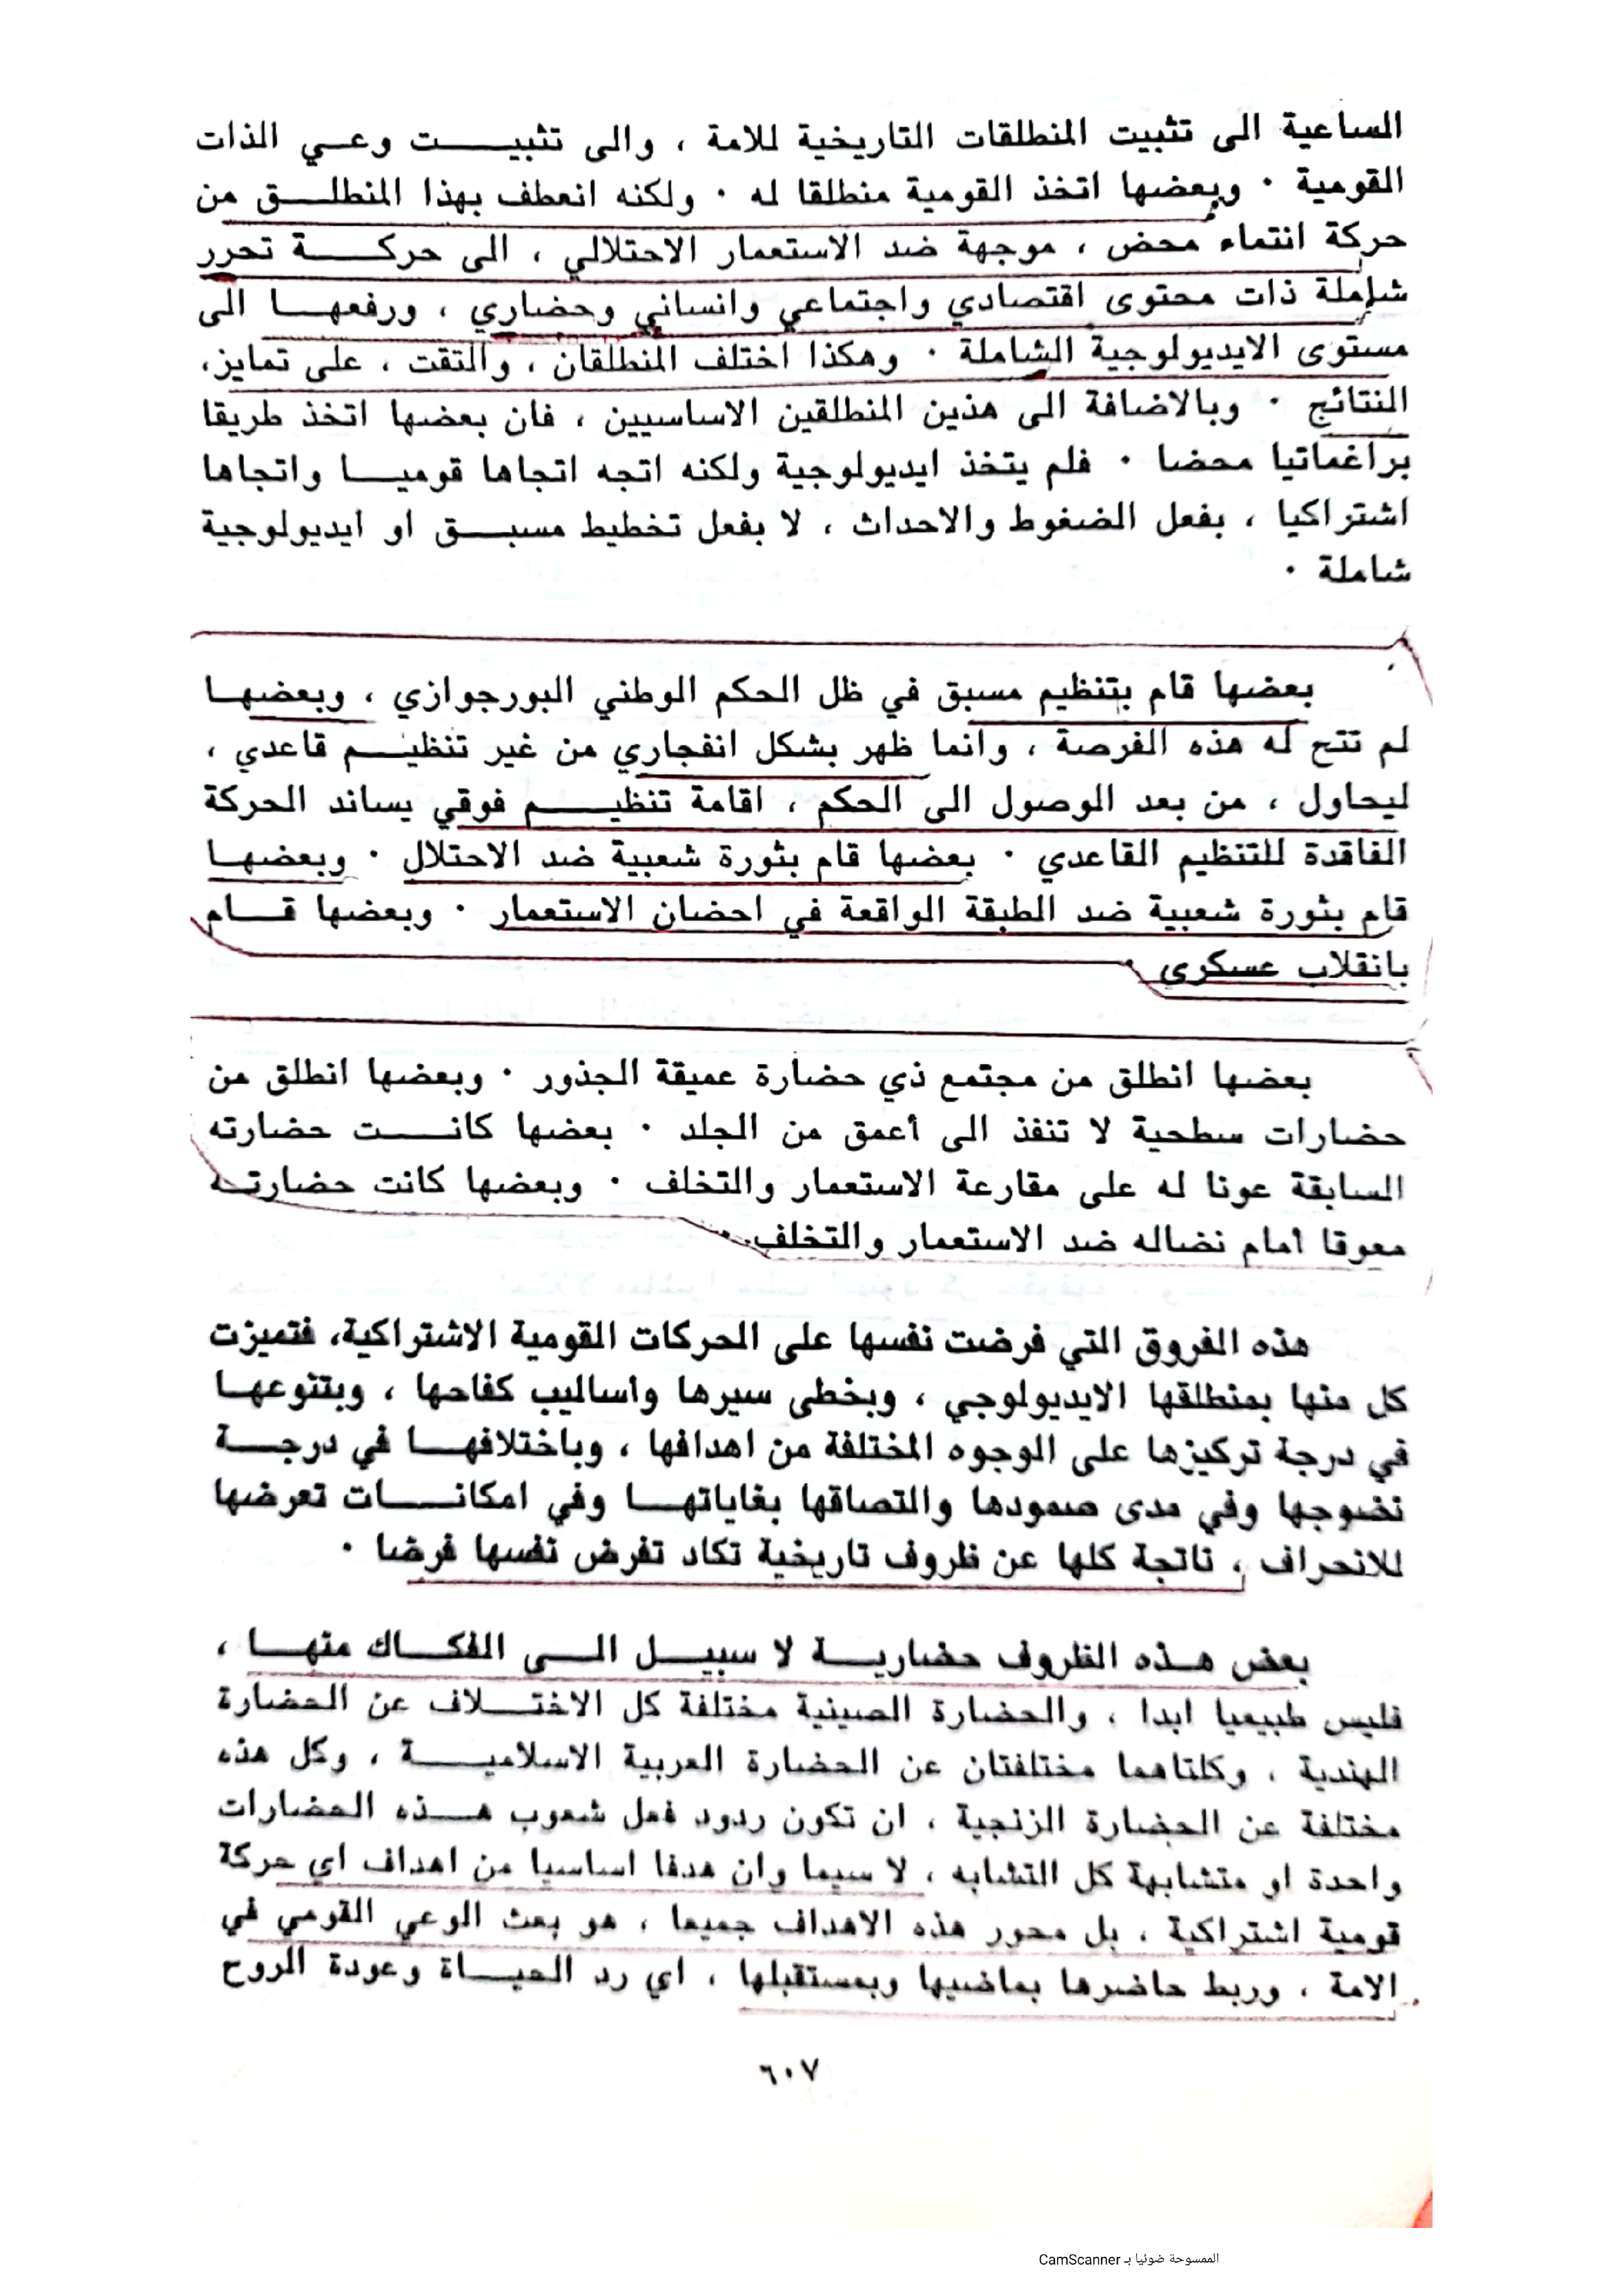 الساعية الى تثبيت المنطلقات التاريخية للامة ، والى تثبيت وعي الذات
القومية . وبعضها اتخذ القومية منطلقا له . ولكنه انعطف بهذا المنطلق من
حركة انتماء محض ، موجهة ضد الاستعمار الاحتلالي ، الى حركة تحرر
شاملة ذات محتوى اقتصادي واجتماعي وانساني وحضاري ، ورفعها الى
مستوى الايديولوجية الشاملة . وهكذا اختلف المنطلقان ، والتقت ، على تمايز،
النتائج . وبالاضافة الى هذين المنطلقين الاساسيين ، فان بعضها اتخذ طريقا
براغماتيا محضا . فلم يتخذ ايديولوجية ولكنه اتجه اتجاها قوميا واتجاها
اشتراكيا ، بفعل الضغوط والاحداث ، لا بفعل تخطيط مسبق او ايديولوجية
شاملة .
بعضها قام بتنظيم مسبق في ظل الحكم الوطني البورجوازي ، وبعضها
لم تتح له هذه الفرصة ، وانما ظهر بشكل انفجاري من غير تنظيم قاعدي ،
ليحاول ، من بعد الوصول الى الحكم ، اقامة تنظيم فوقي يساند الحركة
الفاقدة للتنظيم القاعدي . بعضها قام بثورة شعبية ضد الاحتلال . وبعضها
قام بثورة شعبية ضد الطبقة الواقعة في احضان الاستعمار . وبعضها قام
بانقلاب عسكري .
بعضها انطلق من مجتمع ذي حضارة عميقة الجذور . وبعضها انطلق من
حضارات سطحية لا تنفذ الى أعمق من الجلد . بعضها كانت حضارته
السابقة عونا له على مقارعة الاستعمار والتخلف . وبعضها كانت حضارته
معوقا امام نضاله ضد الاستعمار والتخلف .
هذه الفروق التي فرضت نفسها على الحركات القومية الاشتراكية، فتميزت
كل منها بمنطلقها الايديولوجي ، وبخطى سيرها واساليب كفاحها ، وبتنوعها
في درجة تركيزها على الوجوه المختلفة من اهدافها ، وباختلافها في درجة
نضوجها وفي مدى صمودها والتصاقها بغاياتها وفي امكانات تعرضها
للانحراف ، ناتجة كلها عن ظروف تاريخية تكاد تفرض نفسها فرضا .
بعض هذه الظروف حضارية لا سبيل الى الفكاك منها ،
فليس طبيعيا ابدا ، والحضارة الصينية مختلفة كل الاختلاف عن الحضارة
الهندية ، وكلتاهما مختلفتان عن الحضارة العربية الاسلامية ، وكل هذه
مختلفة عن الحضارة الزنجية ، ان تكون ردود فعل شعوب هذه الحضارات
واحدة او متشابهة كل التشابه ، لا سيما وان هدفا اساسيا من اهداف اي حركة
قومية اشتراكية ، بل محور هذه الاهداف جميعا ، هو بعث الوعي القومي في
الامة ، وربط حاضرها بماضيها وبمستقبلها ، اي رد الحياة وعودة الروح
٦٠٧
الممسوحة ضوئيا بـ CamScanner